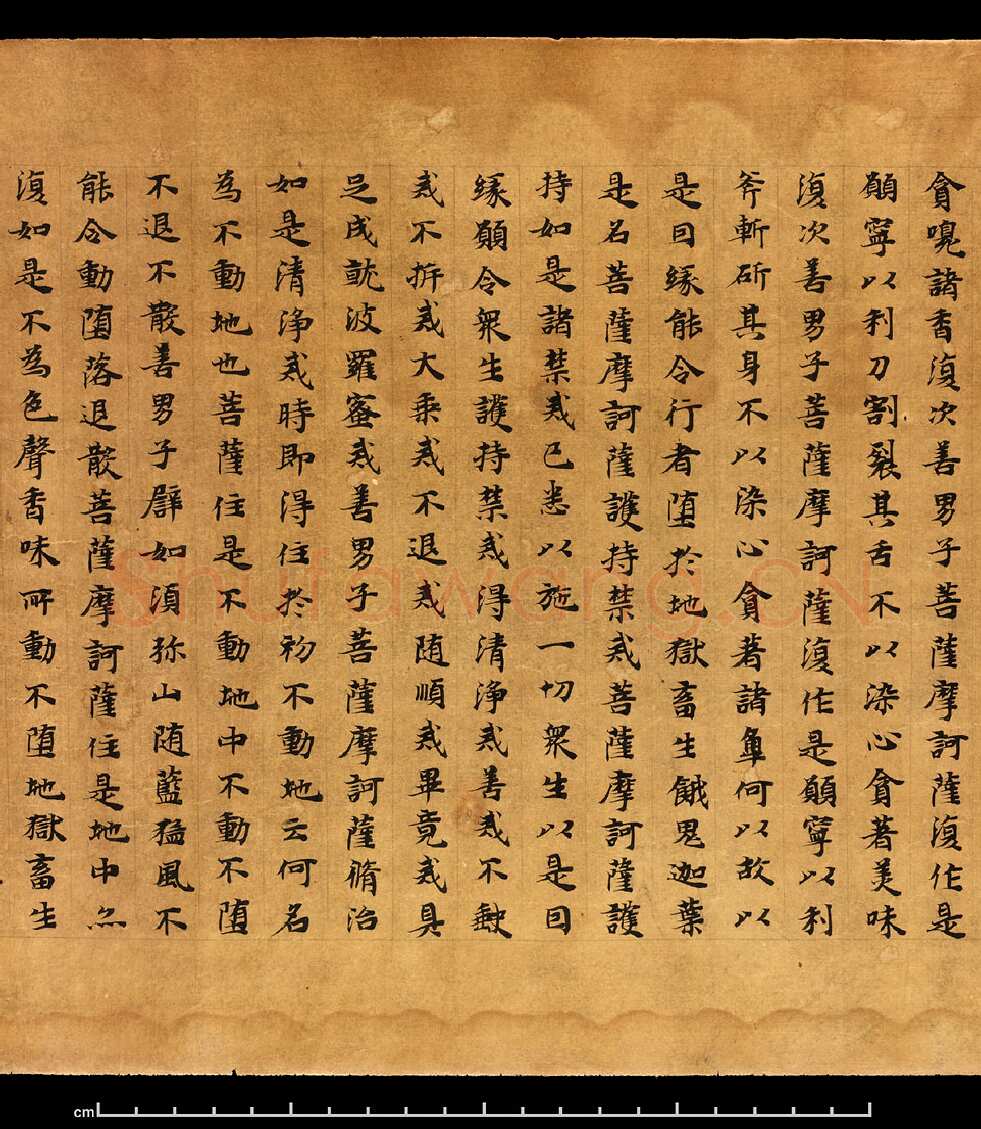 貪嗅諸香復次善男子菩薩摩訶薩復作是
願寧以利刀割裂其舌不以染心貪著美味
復次善男子菩薩摩訶薩復作是願寧以利
斧斬斫其身不以染心貪著諸觸何以故以
是因緣能令行者墮於地獄畜生餓鬼迦葉
是名菩薩摩訶薩護持禁戒菩薩摩訶薩護
持如是諸禁戒已悉以施一切眾生以是因
緣願令眾生護持禁戒得清淨戒善戒不缺
戒不析戒大乘戒不退戒随順戒畢竟戒具
足成就波羅蜜戒善男子菩薩摩訶薩脩治
如是清淨戒時即得住於初不動地云何名
為不動地也菩薩住是不動地中不動不墮
不退不散善男子辟如須弥山随藍猛風不
能令動墮落退散菩薩摩訶薩住是地中亦
復如是不為色聲香味所動不墮地獄畜生
Shufawang.CN
cm